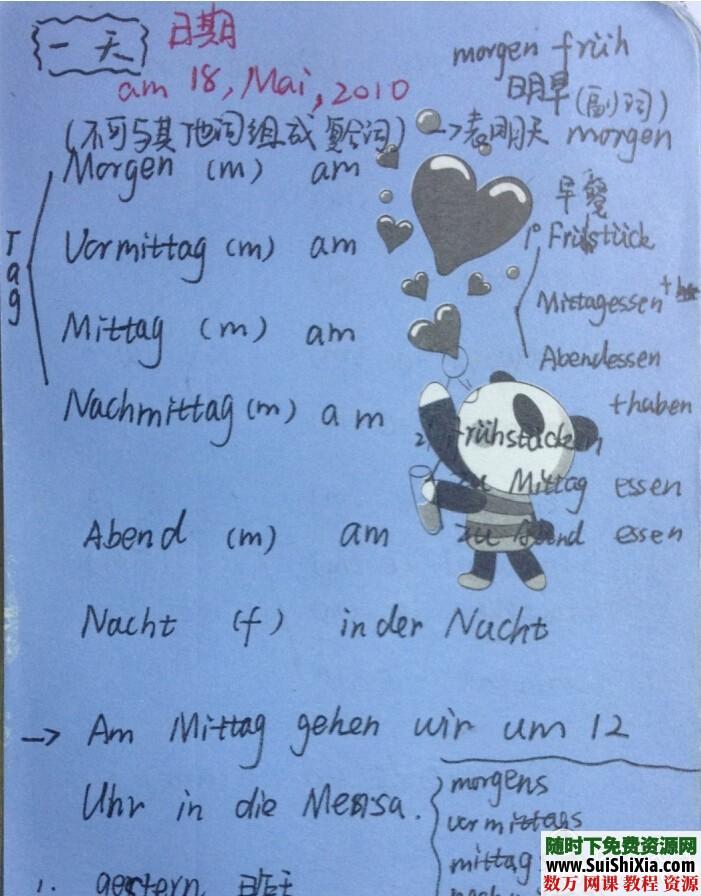 一天 日期
am 18, Mai, 2010
morgen früh
明早(副词)
(不可与其他词组成复合词) → 表明天 morgen
Tag
Morgen (m) am
Vormittag (m) am
Mittag (m) am
Nachmittag (m) am
Abend (m) am
Nacht (f) in der Nacht
早餐
1° Frühstück
Mittagessen +
Abendessen
+ haben
2° frühstücken
zu Mittag essen
zu Abend essen
→ Am Mittag gehen wir um 12
Uhr in die Mensa.
morgens
vormittags
mittag
1. gestern 昨天
随时下免费资源网
www.SuiShiXia.com
数万 网课 教程 资源